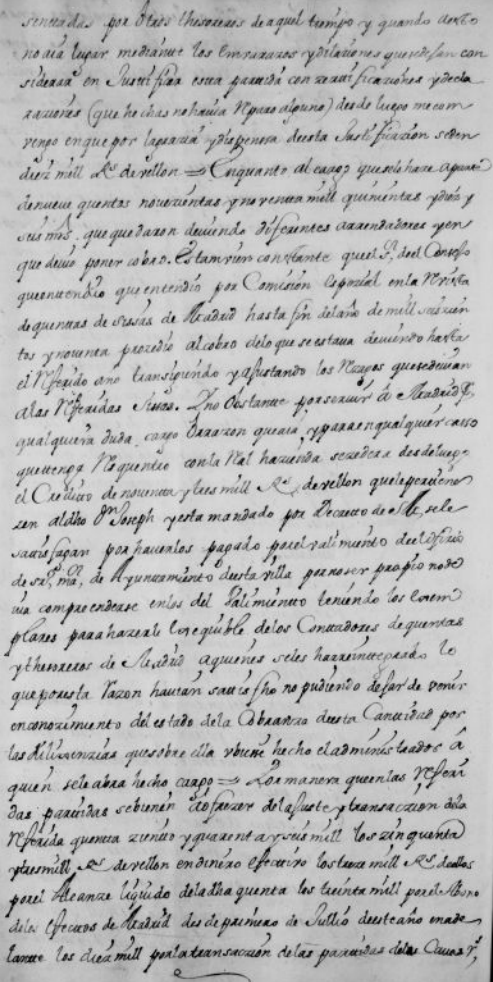 sentadas por otros thesoreros de aquel tiempo y quando a esto
no aia lugar mediante los embarazos y dilaciones que redisan con
siderar en Justificar esta partida con zertificaziones y decla
raziones (que hechas no havia reparo alguno) desde luego me com
vengo en que por la parzial y dispensa de esta Justificazion se den
diez mill Rs. de vellon = En quanto al cargo que se le haze aparte
de nueve quentos novezientas y noventa mill quinientas y diez y
seis ms. que quedaron deviendo diferentes arrendadores y en
que devio poner cobro. Estamvien constante que el Sr. del Consejo
que entendio que entendio por Comision espezial en la Revista
de quentas de sissas de Madrid hasta fin del año de mill seiscien
tos y noventa prozedio al cobro de lo que se estava deviendo hasta
el Referido año transigiendo y ajustando los Rezagos que se devian
a las Referidas sissas. Y no obstante por servir a Madrid
qualquiera duda, cargo o razon que aia y para en qualquier casso
que tenga Requentro con la Real hazienda se zedera desde luego
el Credito de noventa y tres mill Rs. de vellon que le pertene
zen al dho Dn. Joseph y esta mandado por Decreto de S.M. se le
satisfagan por haverlos pagado por el valimiento del ofizio
de de Ayuntamiento de esta villa por no ser propio no de
via comprenderse en los del Valimiento teniendo los exem
plares para hazerle exequible de los Contadores de quentas
y thesoreros de Madrid a quienes se les ha reintegrado lo
que por esta razon havian satisfho no pudiendo dejar de venir
en conozimiento del estado de la Cobranza de esta Cantidad por
las dilixenzias que sobre ella ubiere hecho el administrador a
quien se le abra hecho cargo = Por manera que en las referi
das partidas se bienen a ofrezer del ajuste y transaczion de la
Referida quenta ziento y quarenta y seis mill los zinquenta
y tres mill Rs. de vellon en dinero efectivo los treze mill Rs. de ellos
por el Alcanze liquido de la dha quenta los treinta mill por el Abono
de los efectos de Madrid desde primero de Jullio de este año en ade
lante los diez mill por la transaczion de las partidas de las